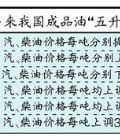 来我国成品油“五升
汽、柴油价格每吨分别
汽、柴油价格每吨分别上
汽、柴油价格每吨分别
汽、柴油价格每吨均上调
汽、柴油价格每吨均上调
汽、柴油价格每吨上调3